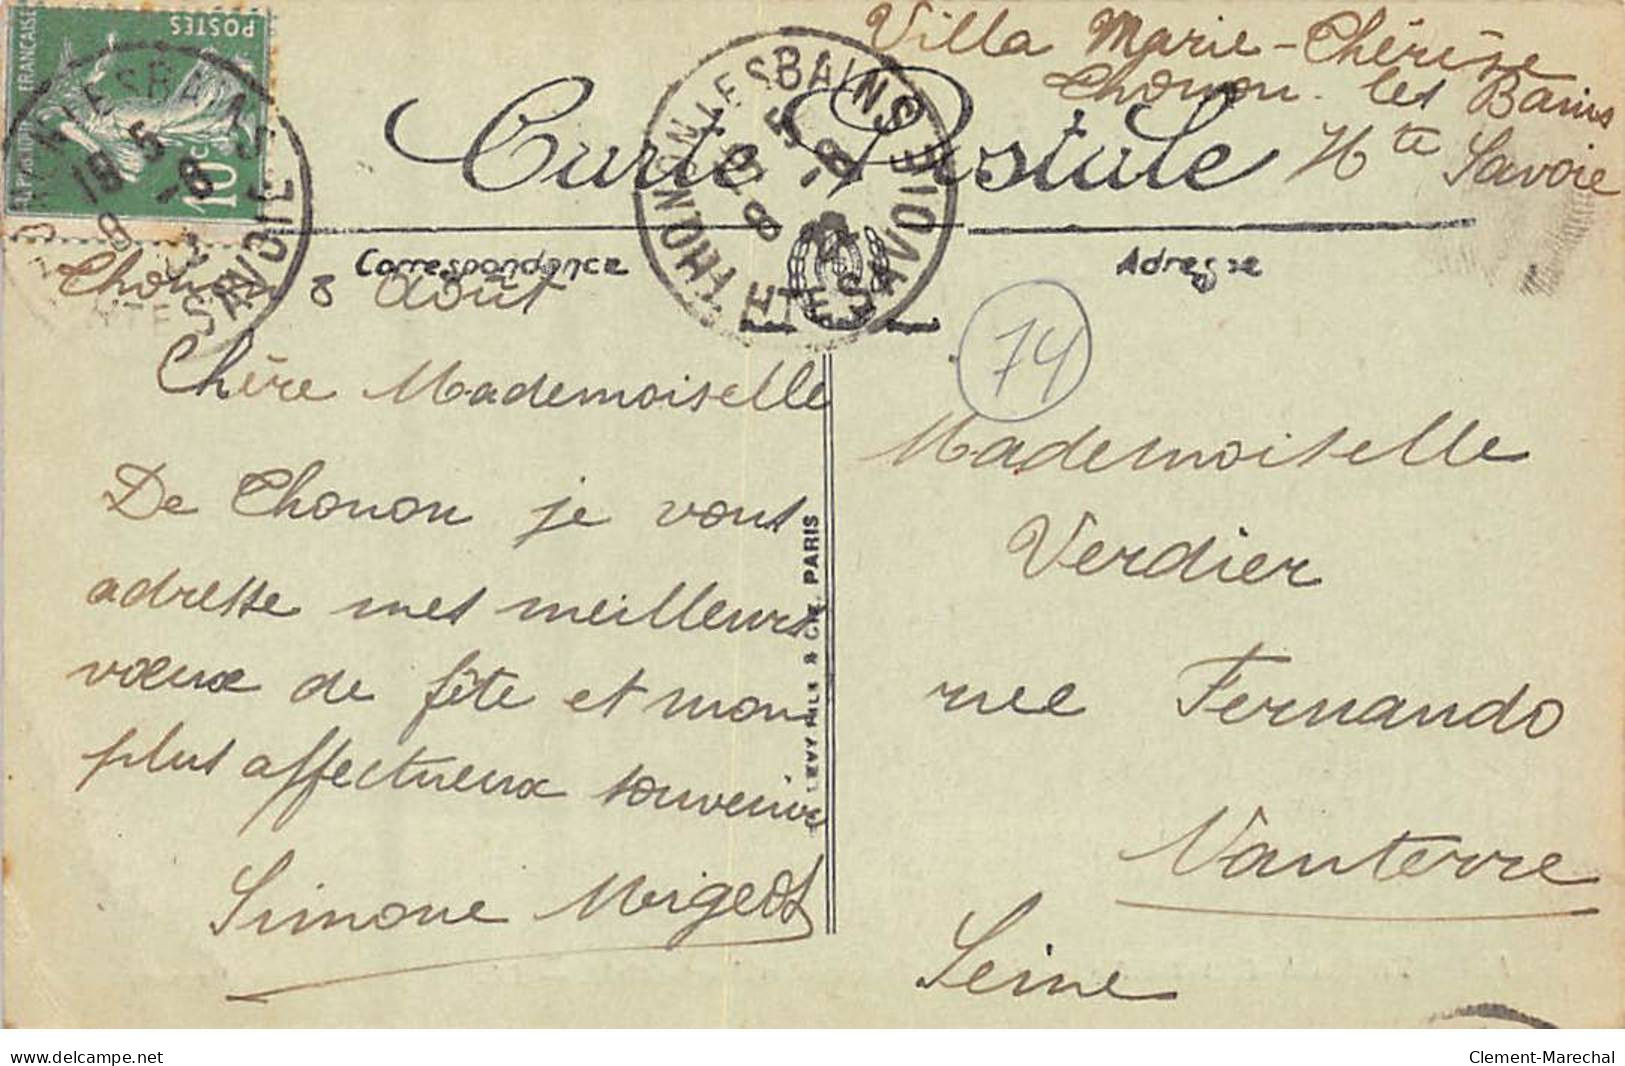 Villa Marie-Thérèse
Thonon les Bains
Hte Savoie
POSTES
FRANÇAISE
10c
THONON LES BAINS
HTE SAVOIE
18 5
8 -8
Carte Postale
Correspondance
Adresse
Thonon 8 Août
74
Chère Mademoiselle
De Thonon je vous
adresse mes meilleurs
vœux de fête et mon
plus affectueux souvenir
Simone Migeot
LEVY FILS & CIE. PARIS
Mademoiselle
Verdier
rue Fernando
Nanterre
Seine
delcampe.net
Clement-Marechal